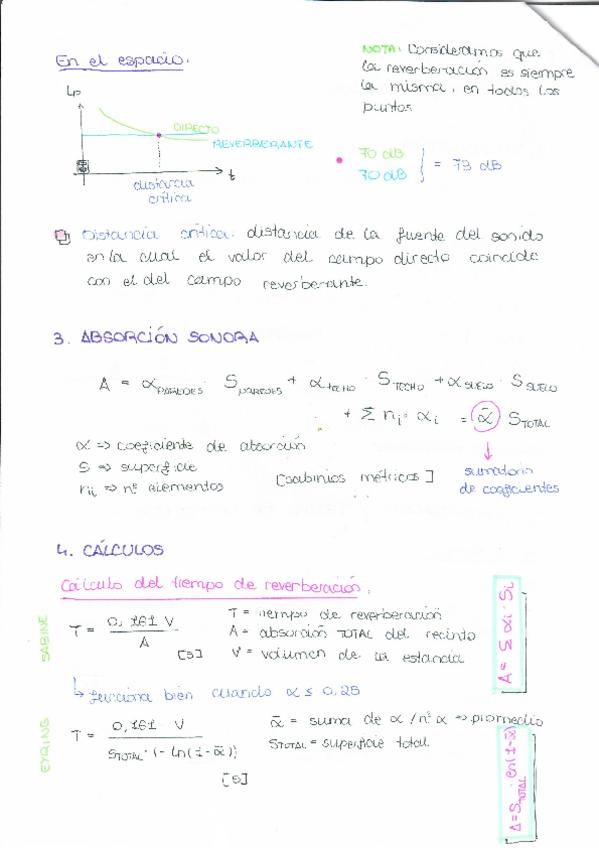 En el espacio.
NOTA: Consideramos que
la reverberación es siempre
la misma, en todos los
puntos
Lp
DIRECTO
REVERBERANTE
t
distancia
crítica
70 dB
70 dB
= 73 dB
Distancia crítica: distancia de la fuente del sonido
en la cual el valor del campo directo coincide
con el del campo reverberante.
3. ABSORCIÓN SONORA
A = α PAREDES · S PAREDES + α TECHO · S TECHO + α SUELO · S SUELO
+ Σ ni · αi = ᾱ S TOTAL
α => coeficiente de absorción
S => superficie
ni => nº elementos
[sabinios métricos]
sumatorio
de coeficientes
4. CÁLCULOS
Cálculo del tiempo de reverberación.
SABINE
T = 0,161 V / A [s]
T = tiempo de reverberación
A = absorción TOTAL del recinto
V = volumen de la estancia
A = Σ αi · Si
↳ funciona bien cuando α ≤ 0,25
EYRING
T = 0,161 · V / S TOTAL · (- ln(1-ᾱ)) [s]
ᾱ = suma de α / nº α => promedio
S TOTAL = superficie total
A = S TOTAL · ln(1-ᾱ)